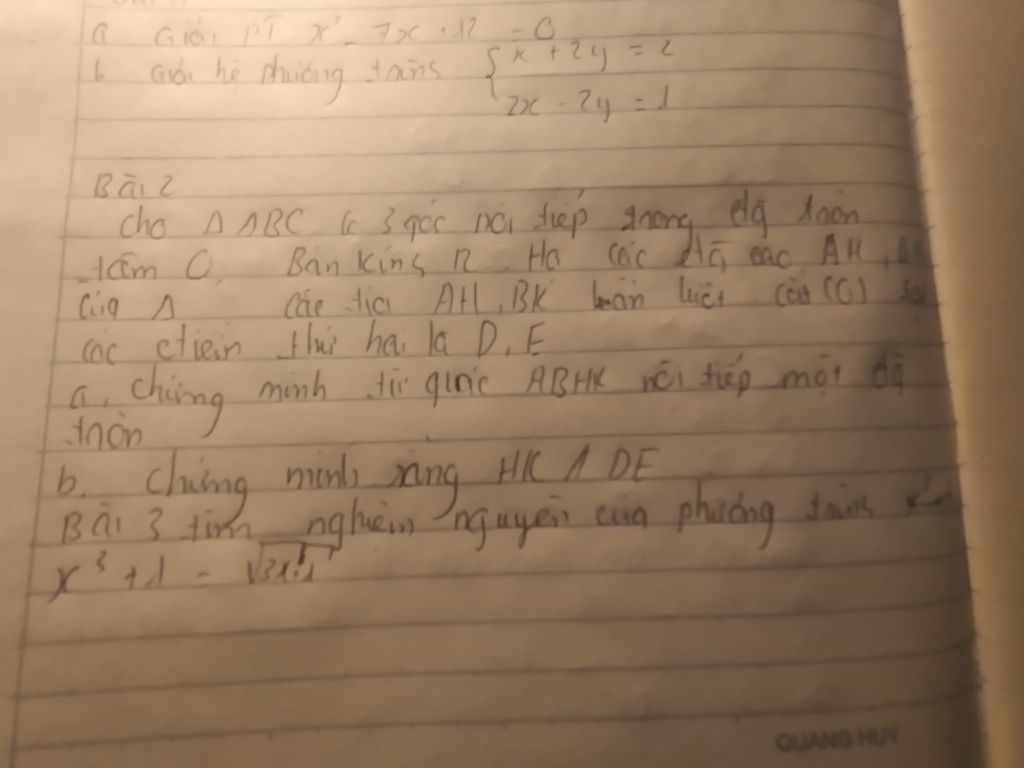 a Giải PT x² - 7x + 12 = 0
b Giải hệ phương trình { x + 2y = 2
2x - 2y = 1
Bài 2
cho Δ ABC có 3 góc nội tiếp trong đg tròn
tâm O. Bán kính R Hạ các đg cao AH,
của Δ các tia AH, BK lần lượt cắt (O) tại
các điểm thứ hai là D, E
a, chứng minh tứ giác ABHK nội tiếp một đg
tròn
b. Chứng minh rằng HK // DE
Bài 3 tìm nghiệm nguyên của phương trình
x³ + 1 =
QUANG HUY